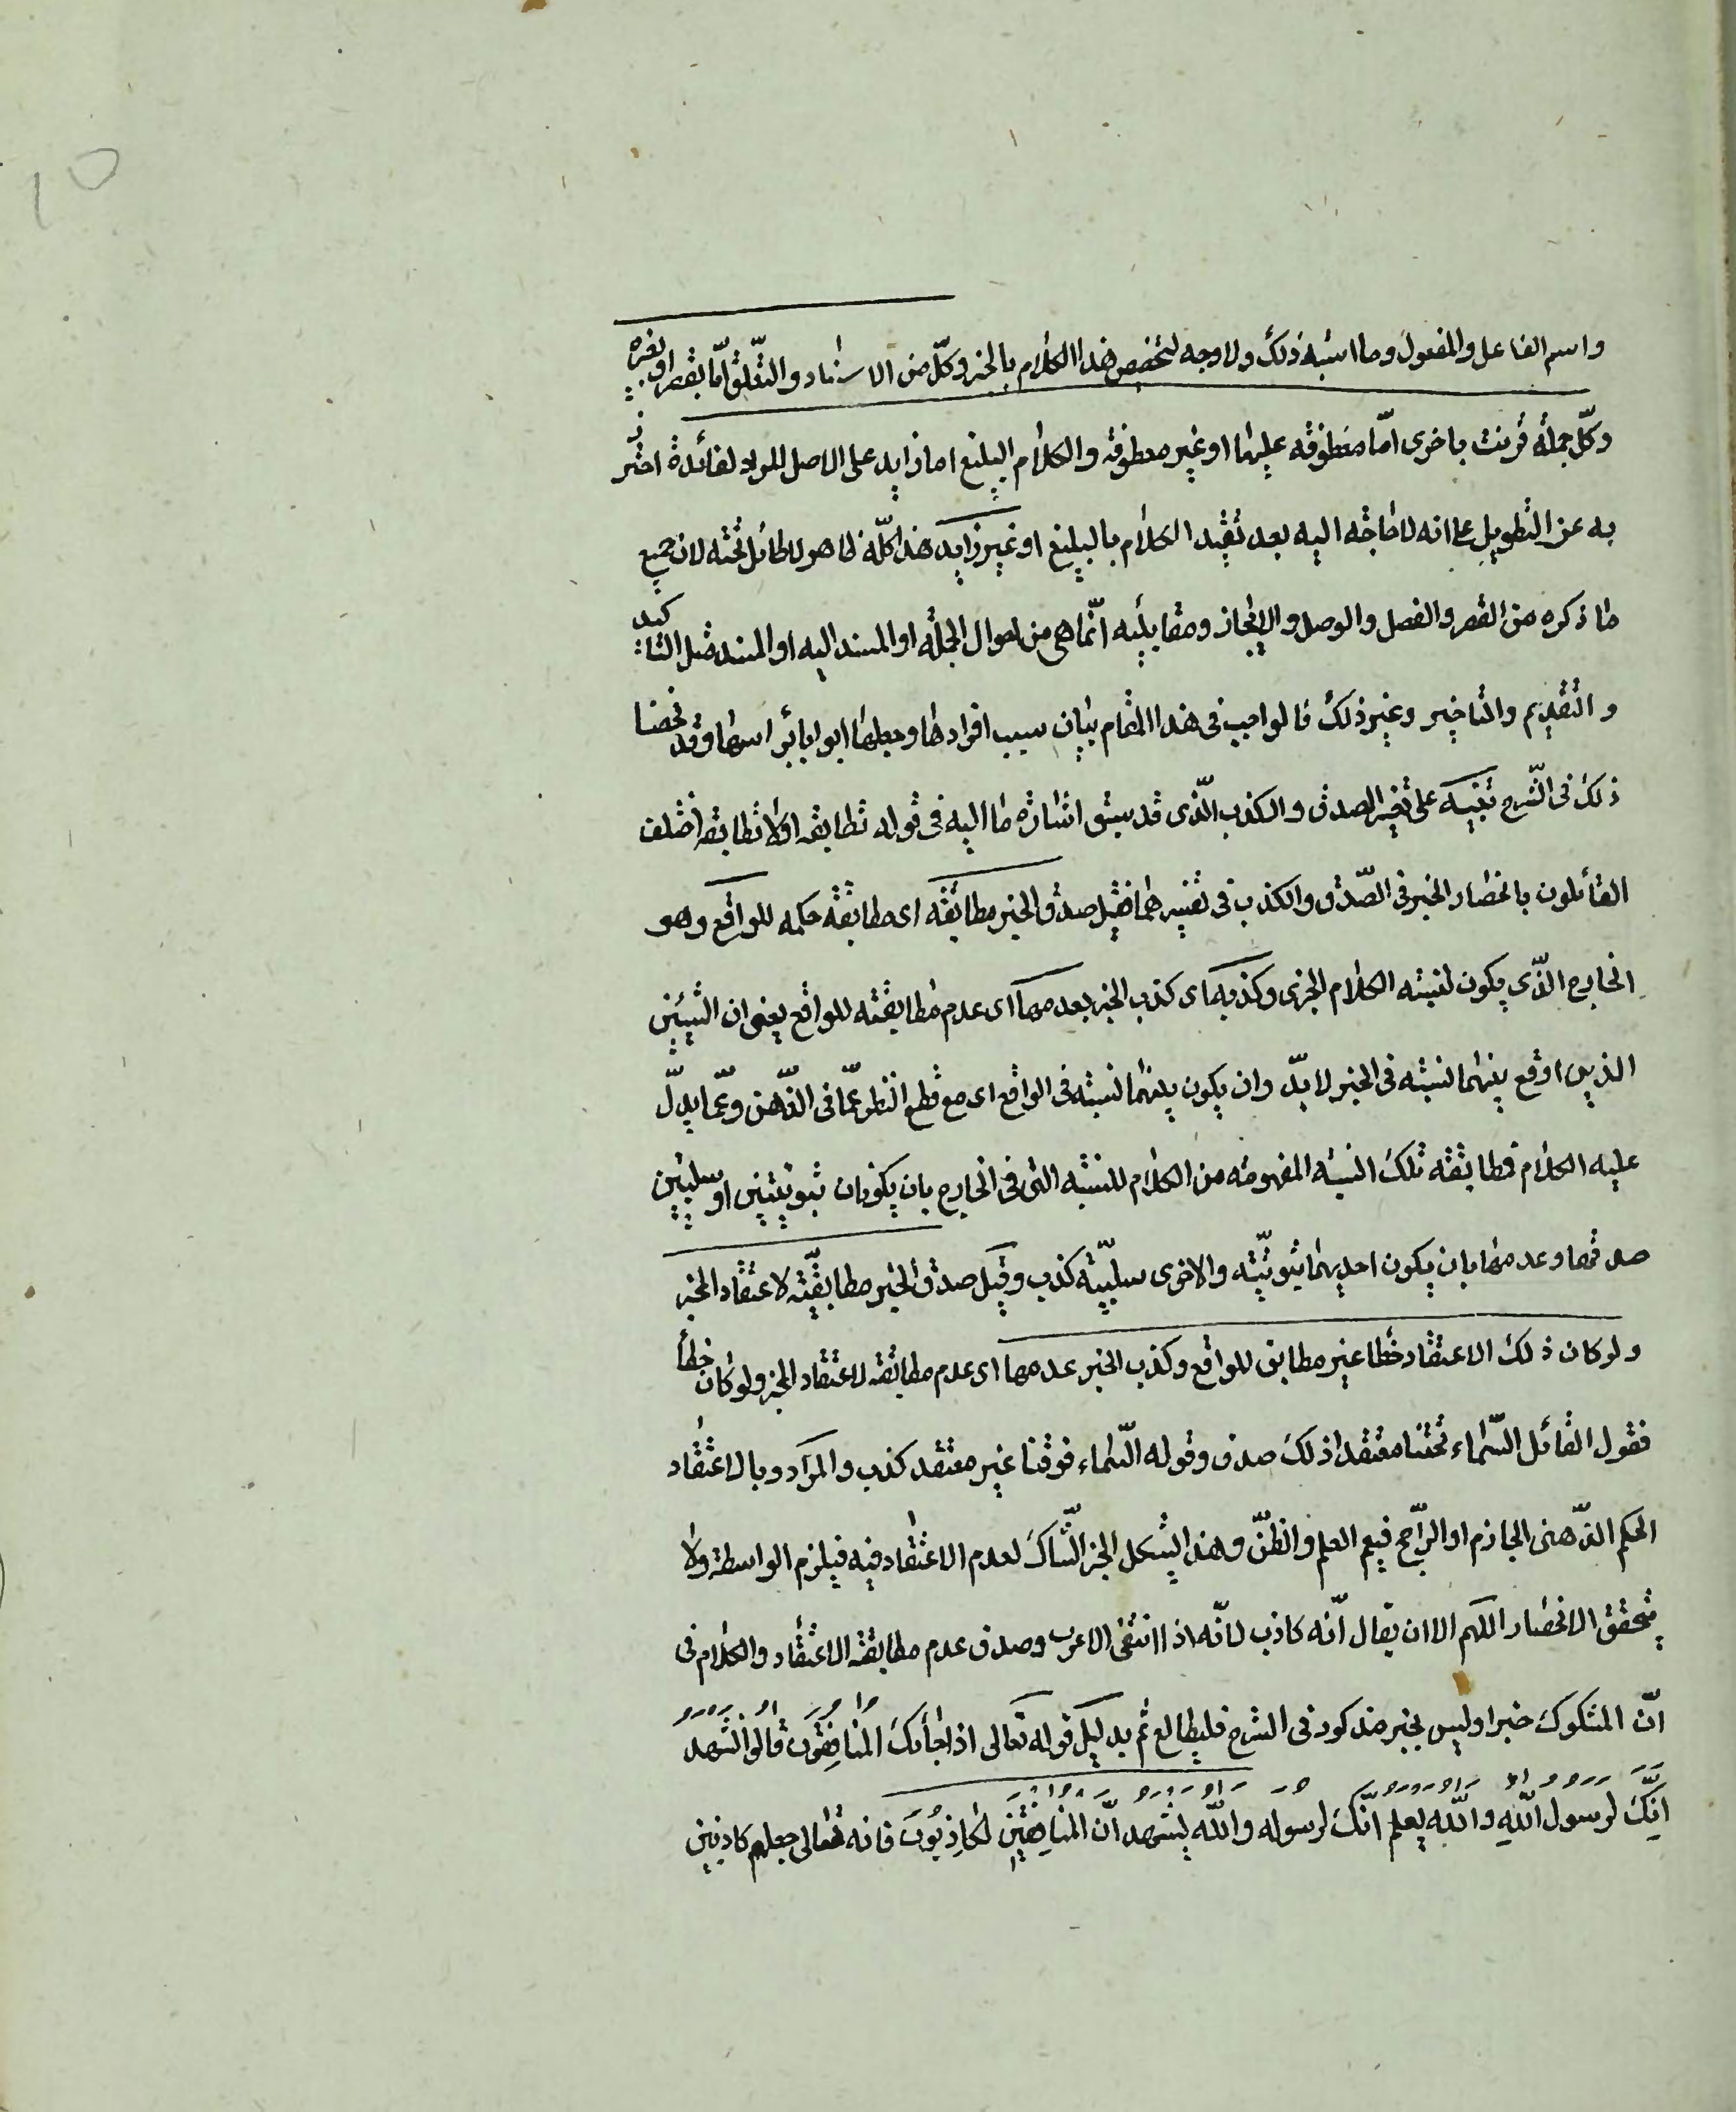 واسم الفاعل والمفعول وما اشبه ذلك ولا وجه لتخصيص هذا الكلام بالخبر وكلّ من الاسناد والتعلّق امّا بقصر او بغيره
وكلّ جملة قرنت باخرى امّا معطوفة عليها او غير معطوفة والكلام البليغ اما زايد على الاصل المراد لفائدة احترز
به عن التطويل على انه لا حاجة اليه بعد تقييد الكلام بالبليغ او غير زايد هذا كلّه ظاهر لا طائل تحته لان جميع
ما ذكره من القصر والفصل والوصل والايجاز ومقابليه انّما هى من احوال الجملة او المسند اليه او المسند مثل التاكيد
والتقديم والتاخير وغير ذلك فالواجب فى هذا المقام بيان سبب افرادها وجعلها ابوابا براسها وقد لخصنا
ذلك فى الشّرح تنبيه على تفسير الصدق والكذب الّذى قد سبق اشارة ما اليه فى قوله تطابقه او لا تطابقه اختلف
القائلون بانحصار الخبر فى الصّدق والكذب فى تفسيرهما فقيل صدق الخبر مطابقته اى مطابقة حكمه للواقع وهو
الخارج الذّى يكون لنسبة الكلام الخبرى وكذبه اى كذب الخبر بعدمها اى عدم مطابقته للواقع يعنى ان الشيئين
الذين اوقع بينهما نسبة فى الخبر لا بدّ وان يكون بينهما نسبة فى الواقع اى مع قطع النظر عمّا فى الذّهن وعمّا يدلّ
عليه الكلام فمطابقة تلك النسبة المفهومة من الكلام للنسبة التى فى الخارج بان يكونان ثبوتيتين او سلبيتين
صدقها وعدمها بان يكون احديهما ثبوتيّة والاخرى سلبيّة كذب وقيل صدق الخبر مطابقته لاعتقاد المخبر
ولو كان ذلك الاعتقاد خطأ غير مطابق للواقع وكذب الخبر عدمها اى عدم مطابقته لاعتقاد المخبر ولو كان خطأ
فقول القائل السّماء تحتنا معتقدا ذلك صدق وقوله السّماء فوقنا غير معتقد كذب والمراد وبالاعتقاد
الحكم الذّهنى الجازم او الرّاجح فيعم العلم والظنّ وهذا يشكل بخبر الشّاك لعدم الاعتقاد فيه فيلزم الواسطة ولا
يتحقق الانحصار اللهم الا ان يقال انّه كاذب لانّه اذا انتفى الاعرب وصدق عدم مطابقة الاعتقاد والكلام فى
انّ المشكوك خبر او ليس بخبر مذكور فى الشرح فليطالع ثم بدليل قوله تعالى اذا جائك المُنافِقُونَ قالوا نشهد
اِنّكَ لرسول اللّهِ واللّه يعلم انّكَ لرسوله واللّه يشهد انّ المُنافِقِينَ لكاذِبُونَ فانه تعالى جعلهم كاذبين